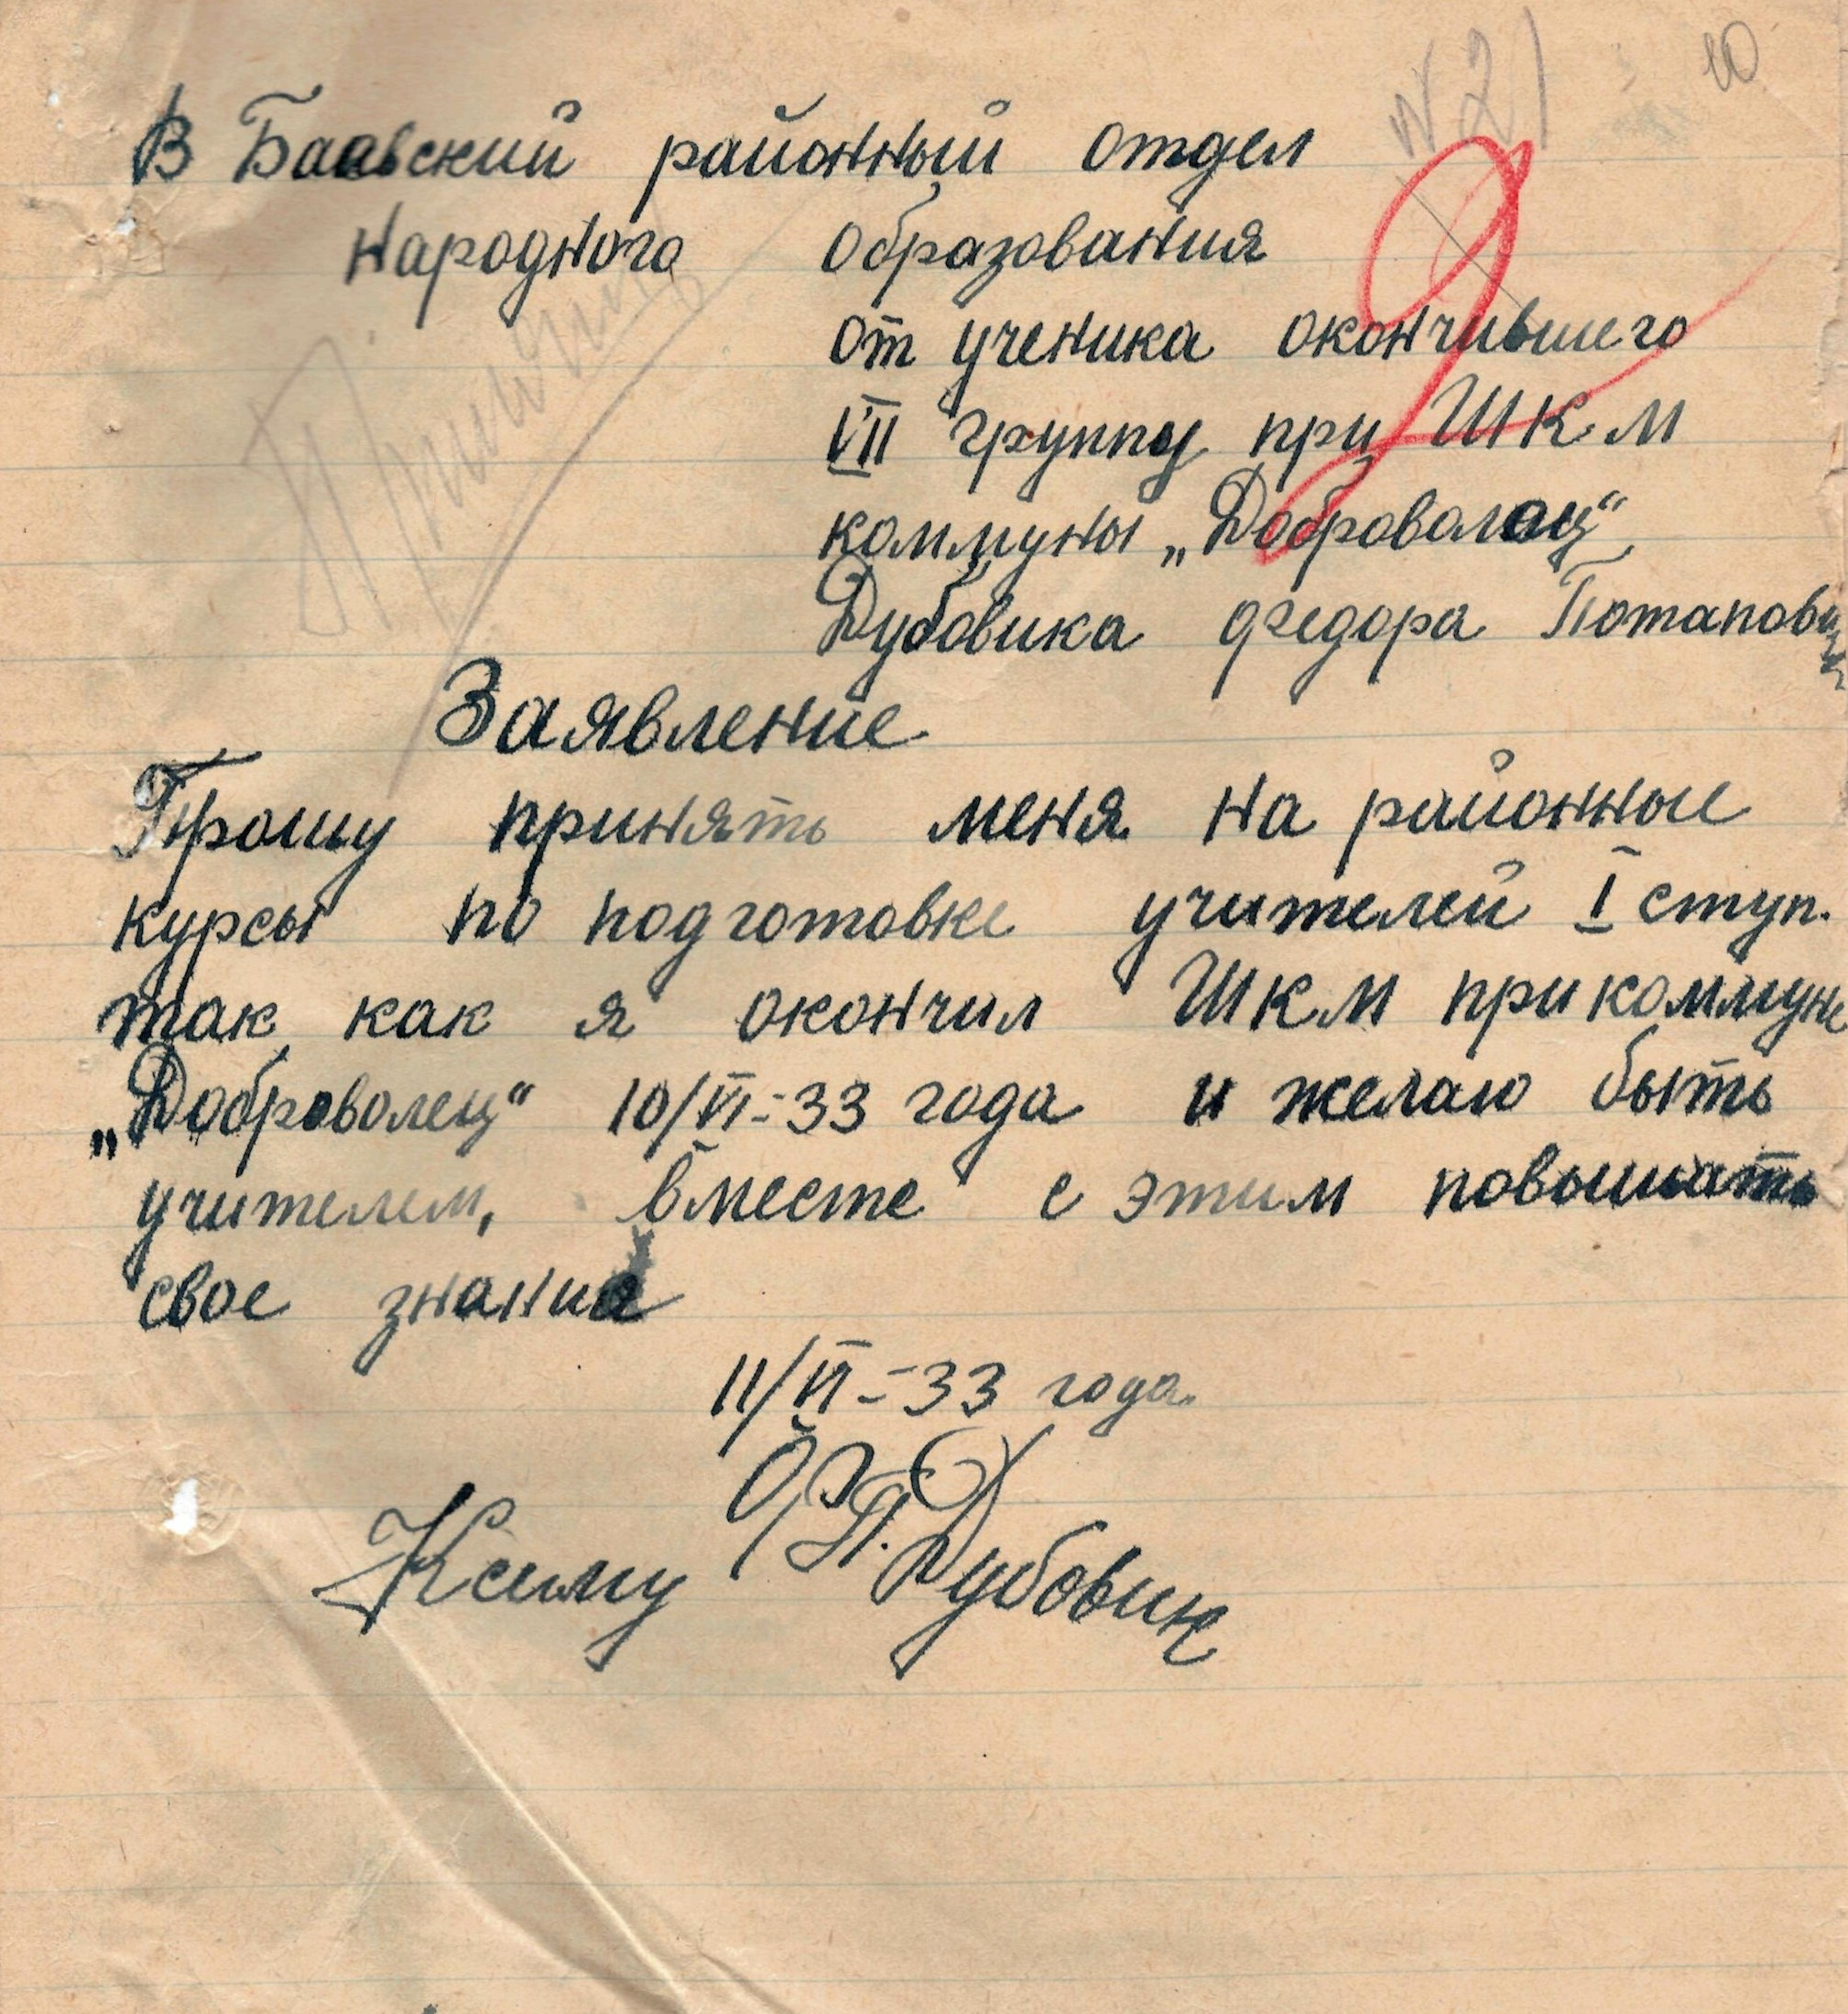 N 21 10
В Баевский районный отдел
народного образования
от ученика окончившего
VII группу при ШКМ
коммуны „Доброволец“
Дубовика Федора Потапович
Заявление
Прошу принять меня на районные
курсы по подготовке учителей I ступ.
так как я окончил ШКМ при коммуне
„Доброволец“ 10/VI-33 года и желаю быть
учителем, вместе с этим повышать
свое знание
11/VI-33 года.
К сему Ф.П. Дубовик